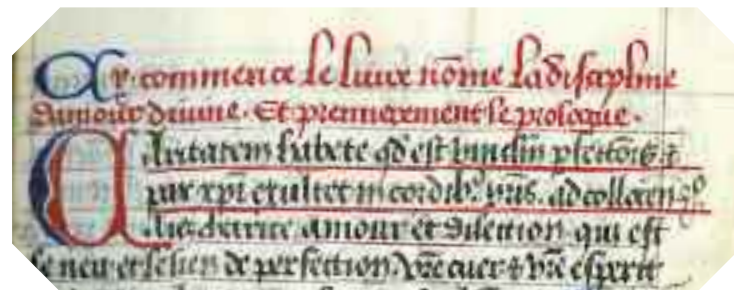 Cy commence le liure nōme la discipline
damour diuine. Et premierement le prologue.
Caritatem habete qd̄ est vinculū ꝑfectiōis et
pax xp̄i exultet in cordibꝰ vr̄is. ad collocen ȝͦ
Aies vraie amour et dilection qui est
le neu et le lien de perfection vr̄e cuer & vr̄e esperit